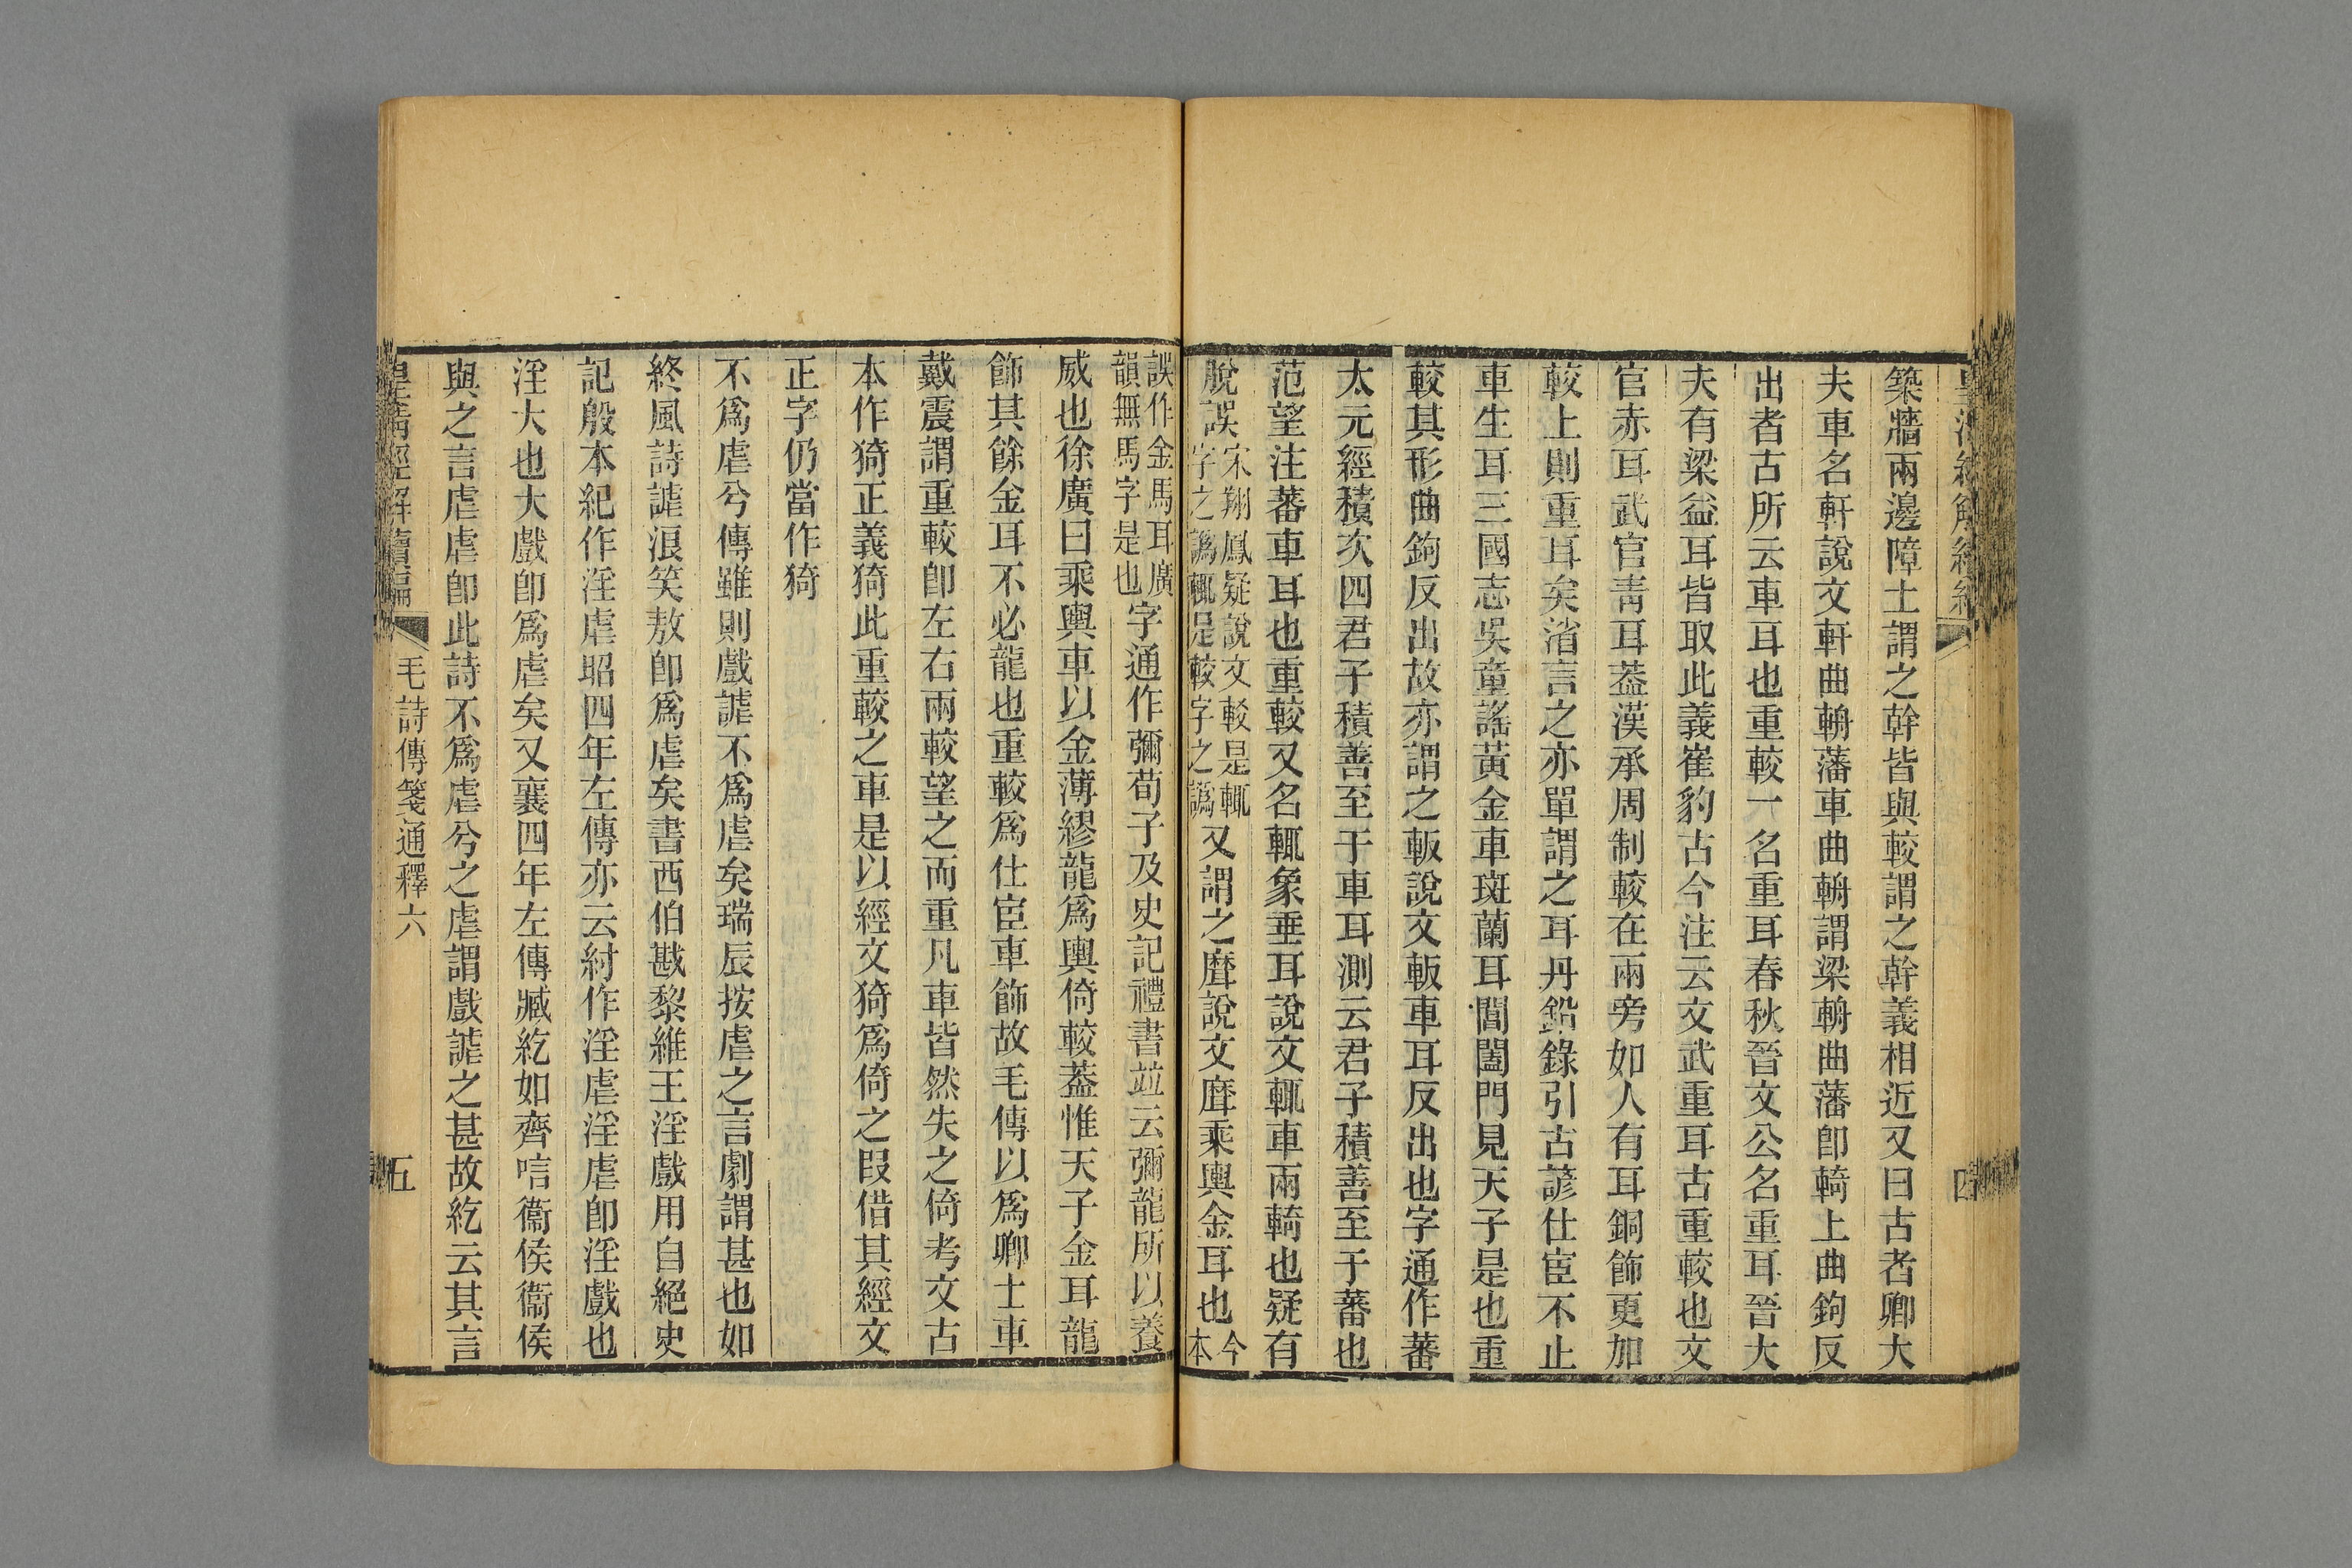 築牆兩邊障土謂之幹皆與較謂之幹義相近又曰古者卿大
夫車名軒說文軒曲輈藩車曲輈謂梁輈曲藩卽輢上曲鉤反
出者古所云車耳也重較一名重耳春秋晉文公名重耳晉大
夫有梁益耳皆取此義崔豹古今注云文武重耳古重較也文
官赤耳武官靑耳葢漢承周制較在兩旁如人有耳銅飾更加
較上則重耳矣渻言之亦單謂之耳丹鉛錄引古諺仕宦不止
車生耳三國志吳童謠黃金車斑蘭耳闓闔門見天子是也重
較其形曲鉤反出故亦謂之軓說文軓車耳反出也字通作蕃
太元經積次四君子積善至于車耳測云君子積善至于蕃也
范望注蕃車耳也重較又名輒象垂耳說文輒車兩輢也疑有
脫誤宋翔鳳疑說文較是輒字之譌輒是較字之譌又謂之㢡說文㢡乘輿金耳也今本
誤作金馬耳廣韻無馬字是也字通作彌荀子及史記禮書竝云彌龍所以養
威也徐廣曰乘輿車以金薄繆龍爲輿倚較葢惟天子金耳龍
飾其餘金耳不必龍也重較爲仕宦車飾故毛傳以爲卿士車
戴震謂重較卽左右兩較望之而重凡車皆然失之倚考文古
本作猗正義猗此重較之車是以經文猗爲倚之叚借其經文
正字仍當作猗
不爲虐兮傳雖則戲謔不爲虐矣瑞辰按虐之言劇謂甚也如
終風詩謔浪笑敖卽爲虐矣書西伯戡黎維王淫戲用自絕史
記殷本紀作淫虐昭四年左傳亦云紂作淫虐淫虐卽淫戲也
淫大也大戲卽爲虐矣又襄四年左傳臧紇如齊唁衞侯衞侯
與之言虐虐卽此詩不爲虐兮之虐謂戲謔之甚故紇云其言
皇淸經解續編 毛詩傳箋通釋六 五